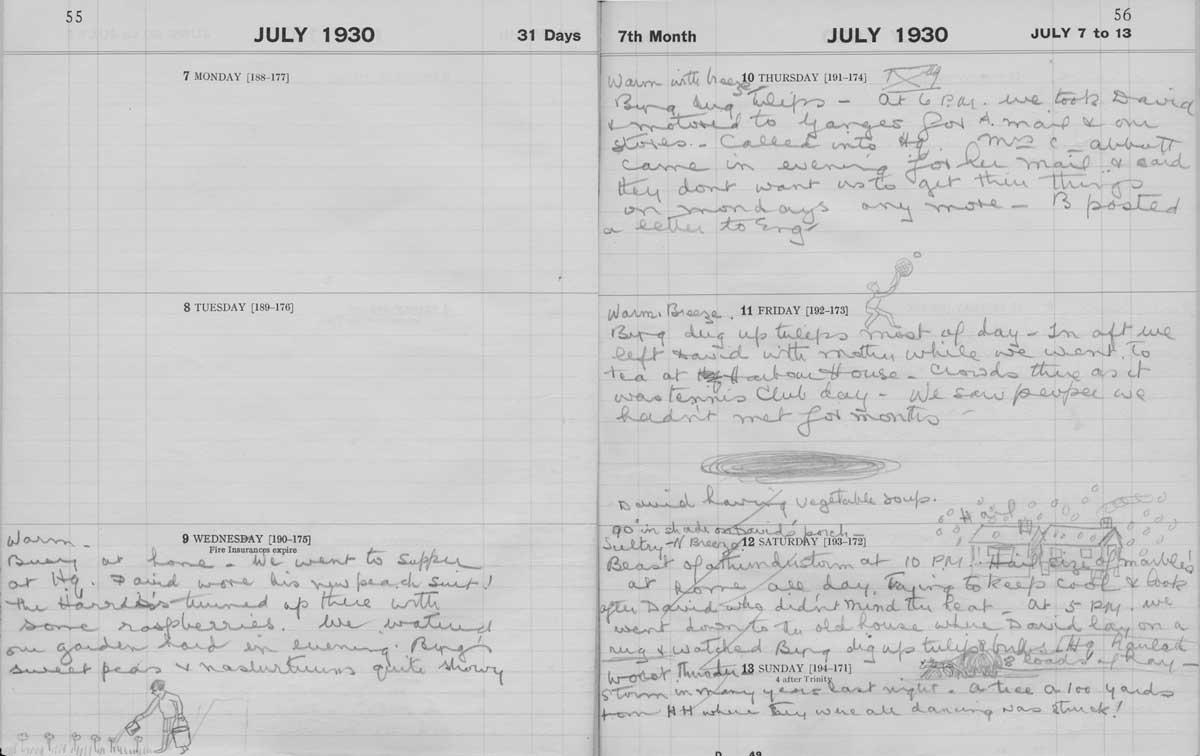 55
JULY 1930
31 Days
7 MONDAY [188-177]
8 TUESDAY [189-176]
Warm -
9 WEDNESDAY [190-175]
Fire Insurances expire
Busy at home - We went to supper
at Hq. David wore his new peach suit!
The Harris's turned up there with
some raspberries. We watered
our garden hard in evening. Byng's
sweet peas & nasturtiums quite showy
7th Month
JULY 1930
56
JULY 7 to 13
Warm with breeze
10 THURSDAY [191-174]
Byng dug tulips - at 6 P.M. we took David
& motored to Ganges for A. mail & our
stores. - Called into Hq. Mrs C. abbott
came in evening for her mail & said
they dont want us to get their things
on mondays any more - B posted
a letter to Eng
Warm. Breeze.
11 FRIDAY [192-173]
Byng dug up tulips most of day - In aft we
left David with mother while we went to
tea at Harbour House - Crowds there as it
was tennis Club day - We saw people we
hadn't met for months -
David having vegetable soup.
90° in shade on David's porch -
Sultry - N Breeze
12 SATURDAY [193-172]
Hail
Beast of a thunderstorm at 10 P.M. Hail size of marbles
at home all day, trying to keep cool & look
after David who didn't mind the heat - at 5 P.M. we
went down to the old house where David lay on a
rug & watched Byng dig up tulip bulbs. Hq hauled
8 loads of hay -
Worst Thunder
13 SUNDAY [194-171]
4 after Trinity
Storm in many years last night - A tree a 100 yards
from HH where they were all dancing was struck!
D 49